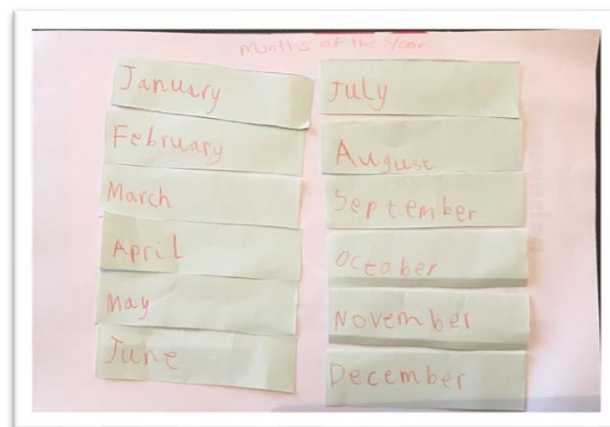 Months of the Year
January
February
March
April
May
June
July
August
September
October
November
December